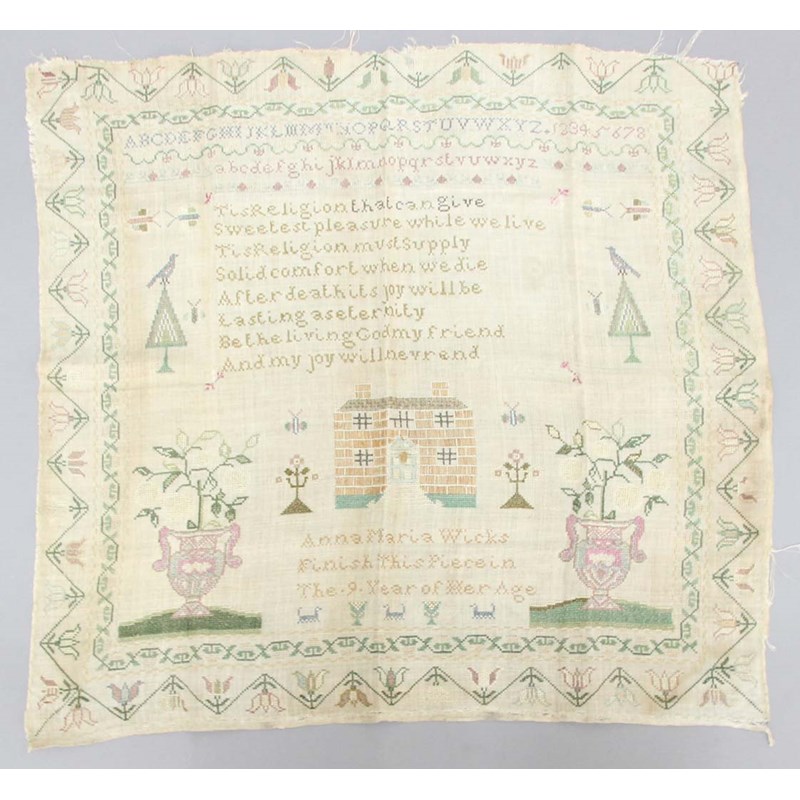 ABCDEFGHIJKLMNOPQRSTUVWXYZ.12345678
abcdefghijklmnopqrstvuwxyz
Tis Religion that can give
Sweetest pleasure while we live
Tis Religion must Supply
Solid comfort when we die
After death its joy will be
Lasting as eternity
Be the living God my friend
And my joy will nevr end
Anna Maria Wicks
Finish This Piece in
The .9. Year of Her Age